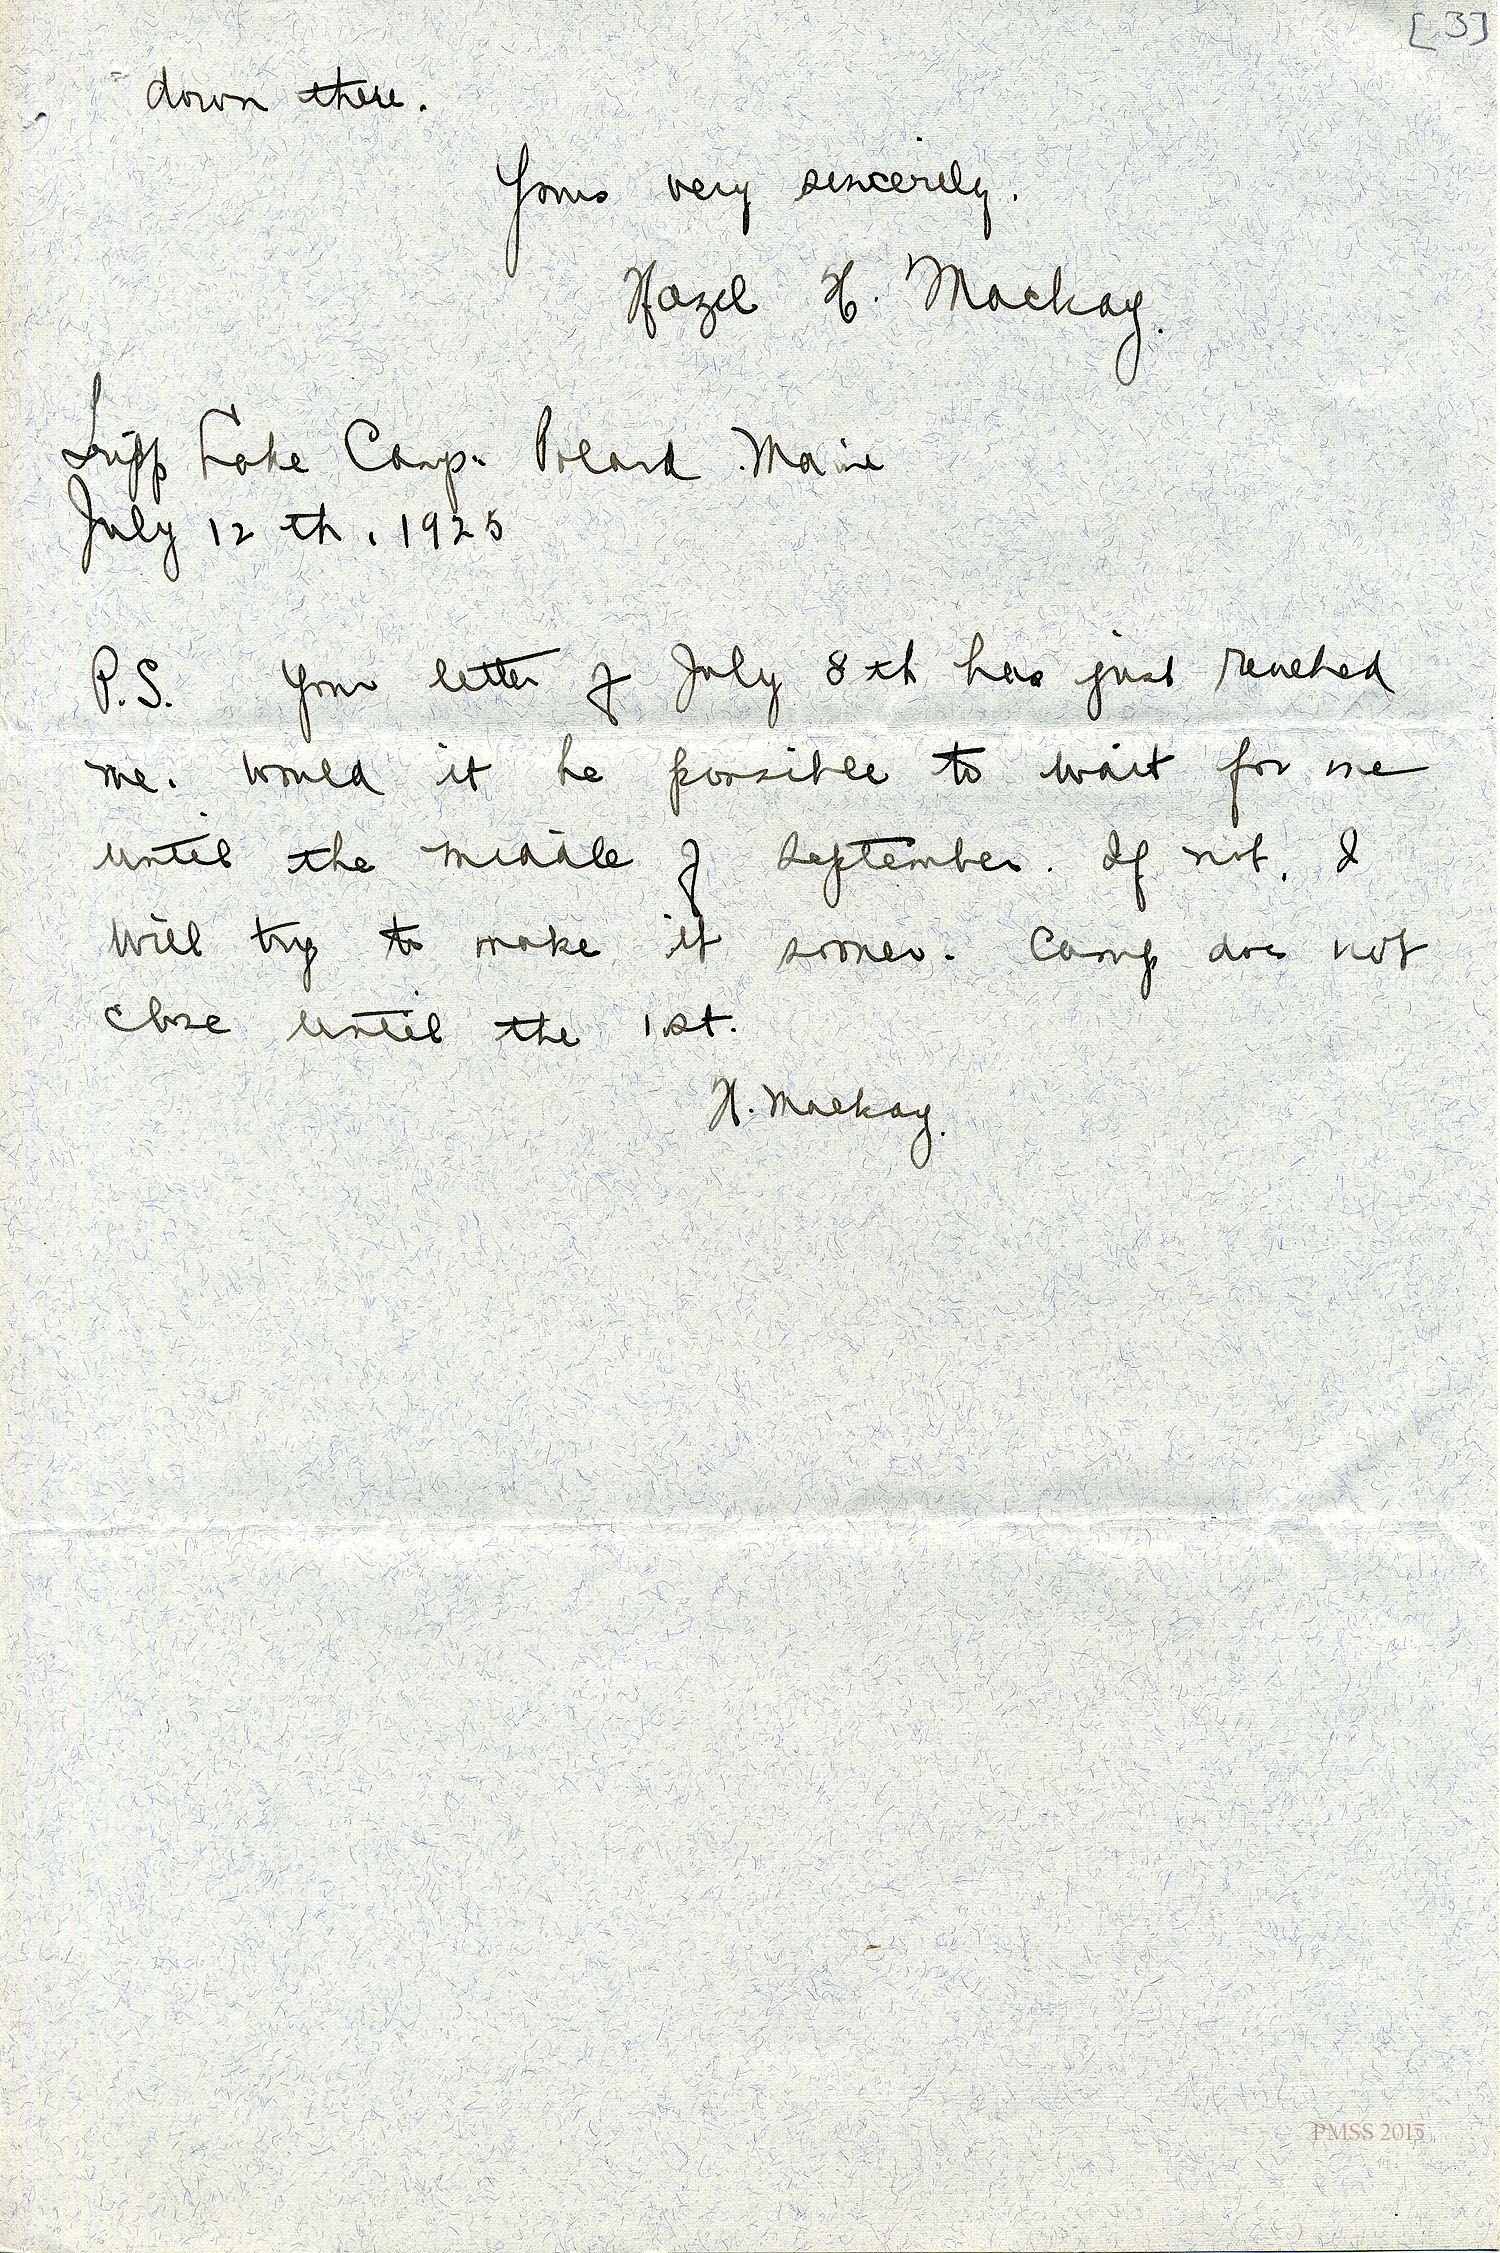 [3]
down there.
Yours very sincerely.
Hazel H. Mackay.
Tripp Lake Camp. Poland Maine
July 12 th, 1925
P.S. Your letter of July 8th has just reached
me. Would it be possible to wait for me
until the middle of September. If not, I
will try to make it sooner. Camp does not
close until the 1st.
H. Mackay.
PMSS 2015